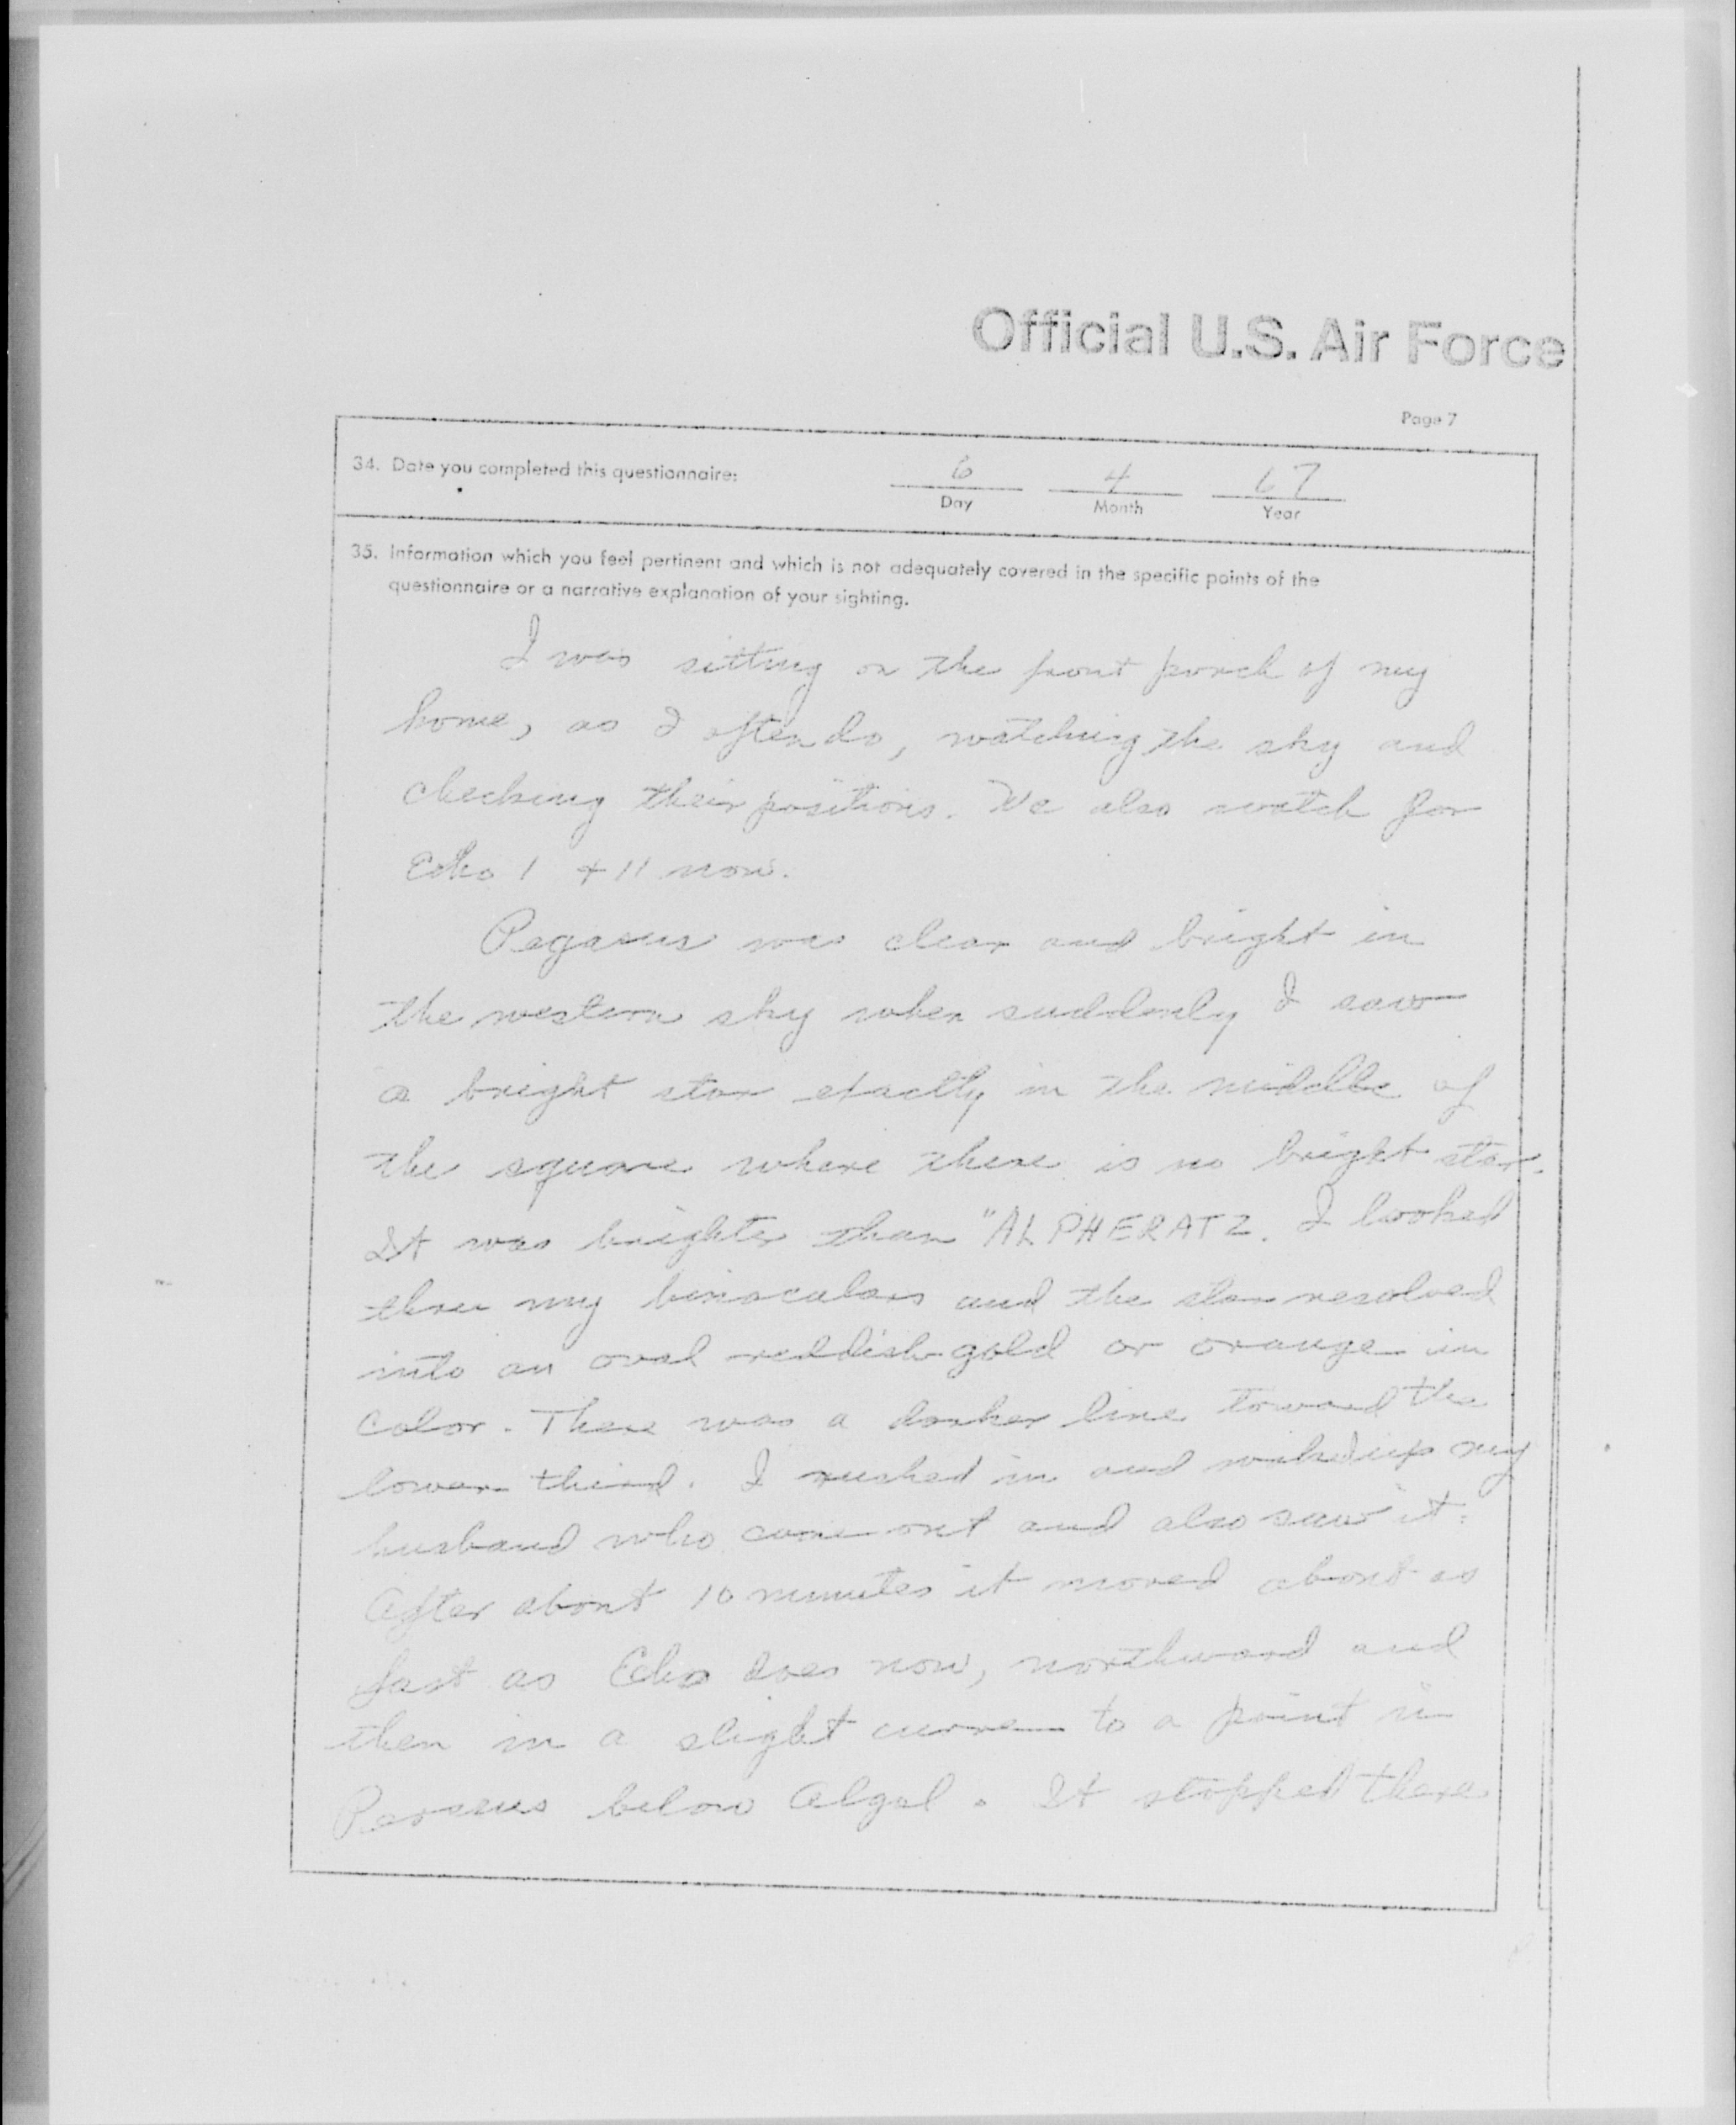 Official U.S. Air Force
Page 7
34. Date you completed this questionnaire:
6 4 67
Day Month Year
35. Information which you feel pertinent and which is not adequately covered in the specific points of the
questionnaire or a narrative explanation of your sighting.
I was sitting on the front porch of my
home, as I often do, watching the sky and
checking their positions. We also watch for
Echo 1 + 11 now.
Pegasus was clear and bright in
the western sky when suddenly I saw
a bright star exactly in the middle of
the square where there is no bright star.
It was brighter than "ALPHERATZ. I looked
thru my binoculars and the star resolved
into an oval reddish gold or orange in
color. There was a darker line toward the
lower third. I rushed in and waked up my
husband who came out and also saw it.
After about 10 minutes it moved about as
fast as Echo does now, northward and
then in a slight curve to a point in
Perseus below Algol. It stopped there